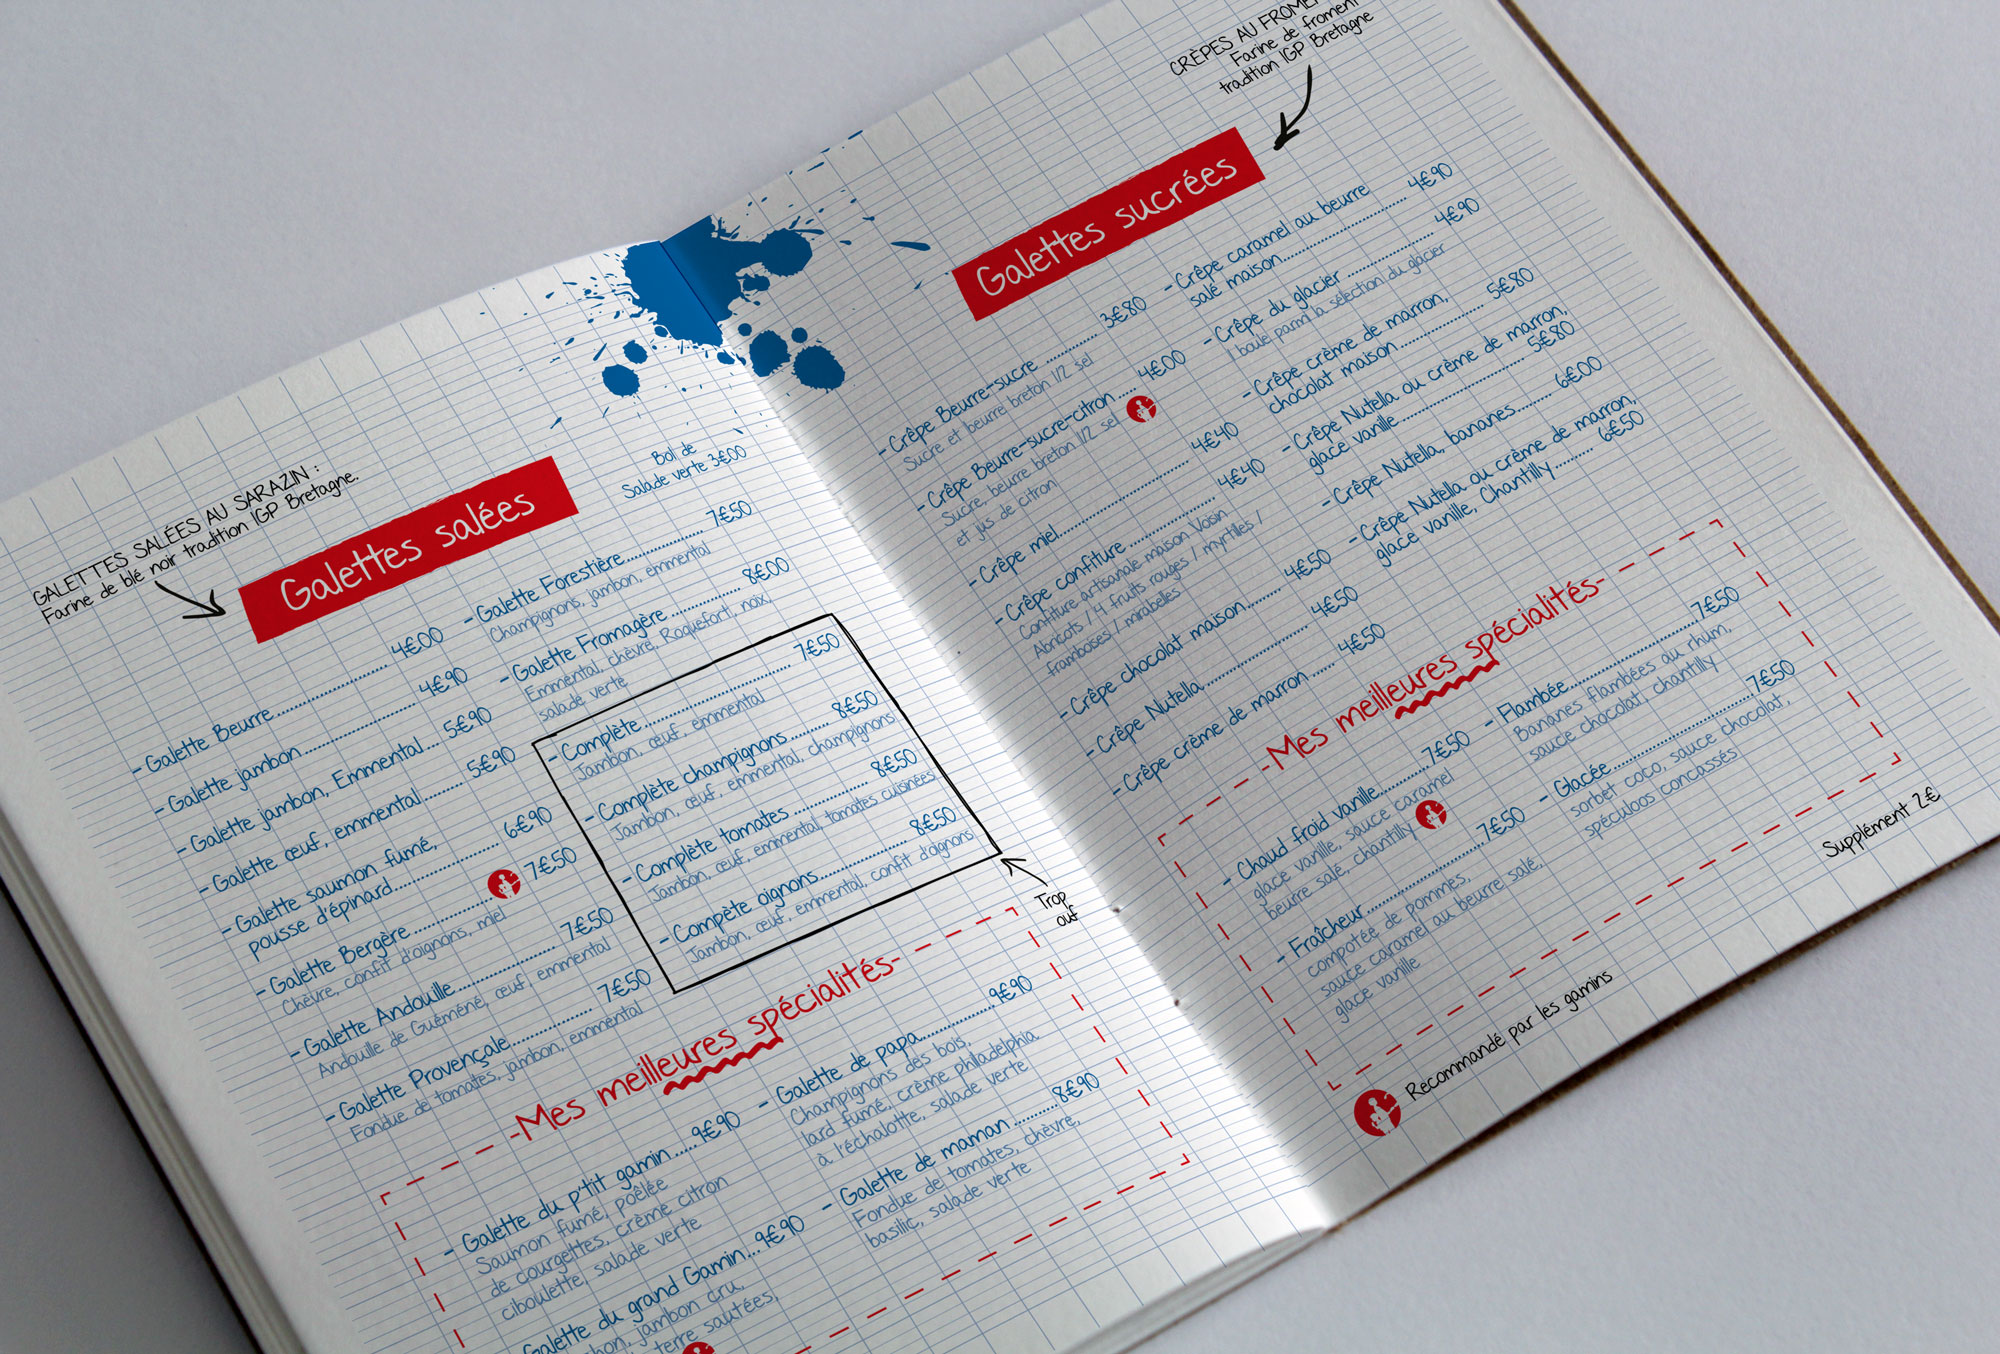 GALETTES SALÉES AU SARAZIN :
Farine de blé noir tradition IGP Bretagne.
Galettes salées
Bol de
Salade verte 3€00
- Galette Beurre 4€00
- Galette jambon 4€90
- Galette jambon, Emmental 5€90
- Galette œuf, emmental 5€90
- Galette saumon fumé,
pousse d'épinard 6€90
- Galette Bergère 7€50
Chèvre, confit d'oignons, miel
- Galette Andouille 7€50
Andouille de Guéméné, œuf, emmental
- Galette Provençale 7€50
Fondue de tomates, jambon, emmental
- Galette Forestière 7€50
Champignons, jambon, emmental
- Galette Fromagère 8€00
Emmental, chèvre, Roquefort, noix,
salade verte
- Complète 7€50
Jambon, œuf, emmental
- Complète champignons 8€50
Jambon, œuf, emmental, champignons
- Complète tomates 8€50
Jambon, œuf, emmental, tomates cuisinées
- Compète oignons 8€50
Jambon, œuf, emmental, confit d'oignons
Trop
ouf
-Mes meilleures spécialités-
- Galette du p'tit gamin 9€90
Saumon fumé, poêlée
de courgettes, crème citron
ciboulette, salade verte
Galette du grand Gamin 9€90
jambon cru,
terre sautées,
- Galette de papa 9€90
Champignons des bois,
lard fumé, crème philadelphia
à l'échalotte, salade verte
- Galette de maman 8€90
Fondue de tomates, chèvre,
basilic, salade verte
CRÈPES AU
Farine de froment
tradition IGP Bretagne
Galettes sucrées
- Crêpe Beurre-sucre 3€80
Sucre et beurre breton 1/2 sel
- Crêpe Beurre-sucre-citron 4€00
Sucre, beurre breton 1/2 sel
et jus de citron
- Crêpe miel 4€40
- Crêpe confiture 4€40
Confiture artisanale maison Voisin
Abricots / 4 fruits rouges / myrtilles /
framboises / mirabelles
- Crêpe chocolat maison 4€50
- Crêpe Nutella 4€50
- Crêpe crème de marron 4€50
- Crêpe caramel au beurre
salé maison 4€90
- Crêpe du glacier 4€90
1 boule parmi la sélection du glacier
- Crêpe crème de marron,
chocolat maison 5€80
- Crêpe Nutella ou crème de marron,
glace vanille 5€80
- Crêpe Nutella, bananes 6€00
- Crêpe Nutella ou crème de marron,
glace vanille, Chantilly 6€50
-Mes meilleures spécialités-
- Chaud froid vanille 7€50
glace vanille, sauce caramel
beurre salé, chantilly
- Fraîcheur 7€50
compotée de pommes,
sauce caramel au beurre salé,
glace vanille
- Flambée 7€50
Bananes flambées au rhum,
sauce chocolat, chantilly
- Glacée 7€50
sorbet coco, sauce chocolat,
spéculoos concassés
Supplément 2€
Recommandé par les gamins